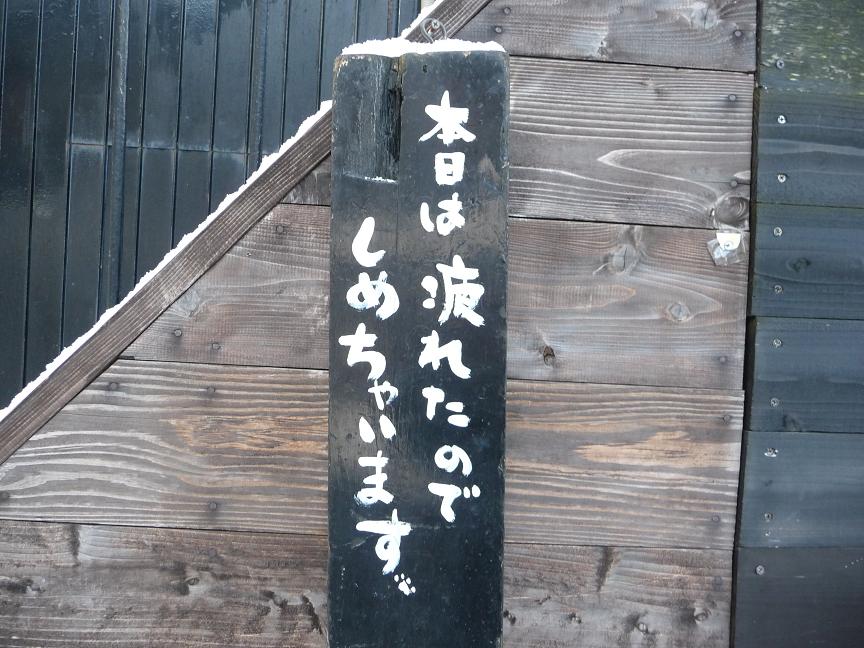 本日は疲れたので
しめちゃいます。